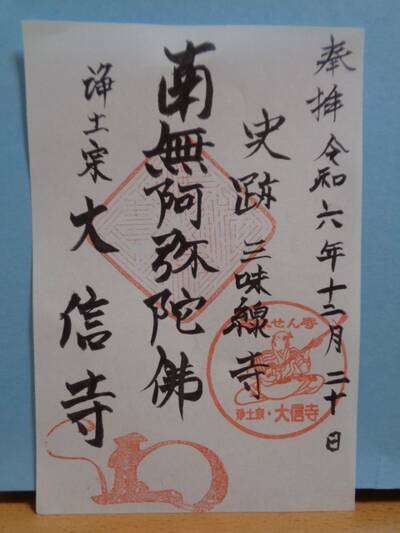 奉拝 令和六年十二月二十日
史跡 三味線寺
南無阿弥陀佛
浄土宗 大信寺
浄土宗・大信寺